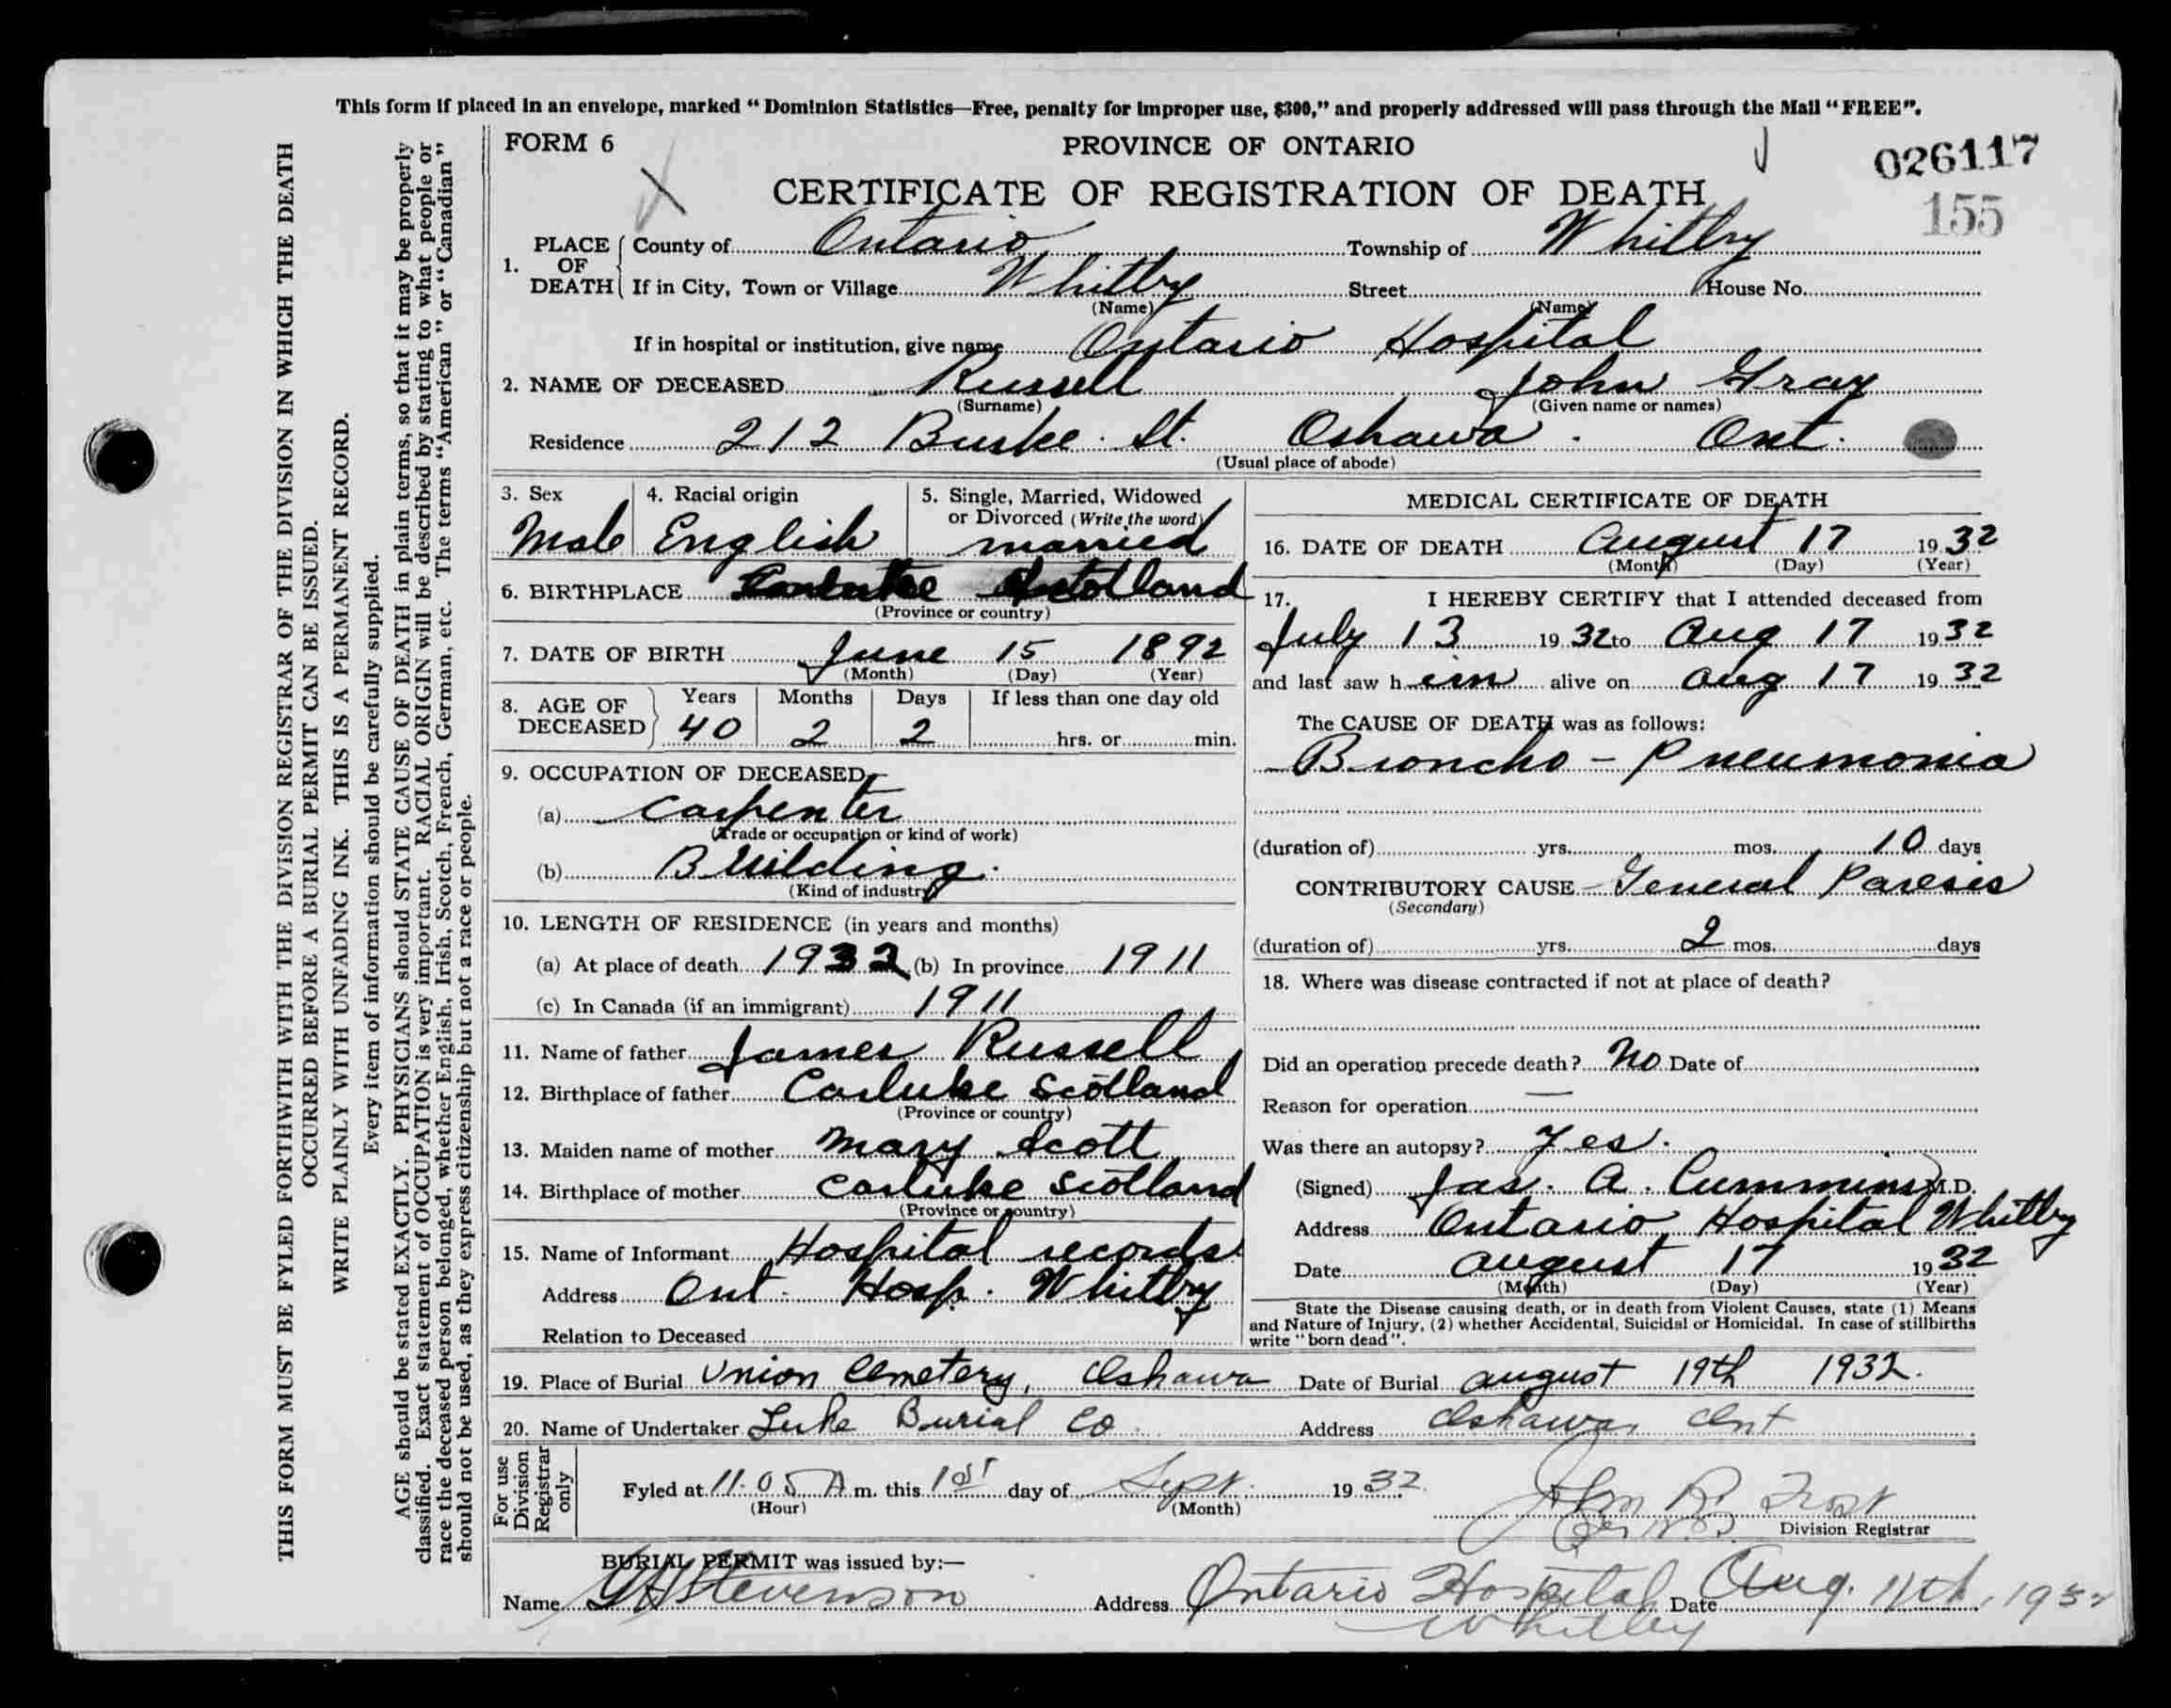 This form if placed in an envelope, marked "Dominion Statistics—Free, penalty for improper use, $300," and properly addressed will pass through the Mail "FREE".
THIS FORM MUST BE FYLED FORTHWITH WITH THE DIVISION REGISTRAR OF THE DIVISION IN WHICH THE DEATH
OCCURRED BEFORE A BURIAL PERMIT CAN BE ISSUED.
WRITE PLAINLY WITH UNFADING INK. THIS IS A PERMANENT RECORD.
Every item of information should be carefully supplied.
AGE should be stated EXACTLY. PHYSICIANS should STATE CAUSE OF DEATH in plain terms, so that it may be properly
classified. Exact statement of OCCUPATION is very important. RACIAL ORIGIN will be described by stating to what people or
race the deceased person belonged, whether English, Irish, Scotch, French, German, etc. The terms "American" or "Canadian"
should not be used, as they express citizenship but not a race or people.
FORM 6
PROVINCE OF ONTARIO
026117
CERTIFICATE OF REGISTRATION OF DEATH
155
1. PLACE OF DEATH County of Ontario Township of Whitby
If in City, Town or Village Whitby Street House No.
(Name) (Name)
If in hospital or institution, give name Ontario Hospital
2. NAME OF DECEASED Russell John Gray
(Surname) (Given name or names)
Residence 212 Burke St. Oshawa. Ont.
(Usual place of abode)
3. Sex 4. Racial origin 5. Single, Married, Widowed
or Divorced (Write the word)
Male English married
6. BIRTHPLACE Carluke Scotland
(Province or country)
7. DATE OF BIRTH June 15 1892
(Month) (Day) (Year)
8. AGE OF DECEASED Years Months Days If less than one day old
40 2 2 hrs. or min.
9. OCCUPATION OF DECEASED
(a) Carpenter
(Trade or occupation or kind of work)
(b) Building.
(Kind of industry)
10. LENGTH OF RESIDENCE (in years and months)
(a) At place of death 1932 (b) In province 1911
(c) In Canada (if an immigrant) 1911
11. Name of father James Russell
12. Birthplace of father Carluke Scotland
(Province or country)
13. Maiden name of mother Mary Scott
14. Birthplace of mother Carluke Scotland
(Province or country)
15. Name of Informant Hospital records
Address Ont. Hosp. Whitby
Relation to Deceased
MEDICAL CERTIFICATE OF DEATH
16. DATE OF DEATH August 17 1932
(Month) (Day) (Year)
17. I HEREBY CERTIFY that I attended deceased from
July 13 1932 to Aug 17 1932
and last saw him alive on Aug 17 1932
The CAUSE OF DEATH was as follows:
Broncho - Pneumonia
(duration of) yrs. mos. 10 days
CONTRIBUTORY CAUSE General Paresis
(Secondary)
(duration of) yrs. 2 mos. days
18. Where was disease contracted if not at place of death?
Did an operation precede death? No Date of
Reason for operation —
Was there an autopsy? Yes.
(Signed) Jas. A. Cummins M.D.
Address Ontario Hospital Whitby
Date August 17 1932
(Month) (Day) (Year)
State the Disease causing death, or in death from Violent Causes, state (1) Means
and Nature of Injury, (2) whether Accidental, Suicidal or Homicidal. In case of stillbirths
write "born dead".
19. Place of Burial Union Cemetery, Oshawa Date of Burial August 19th 1932.
20. Name of Undertaker Luke Burial Co. Address Oshawa, Ont
For use Division Registrar only
Fyled at 11.05 A m. this 1st day of Sept. 1932
(Hour) (Month)
John R. Frost
Division Registrar
BURIAL PERMIT was issued by:—
Name G H Stevenson Address Ontario Hospital Whitby Date Aug. 17th, 1932